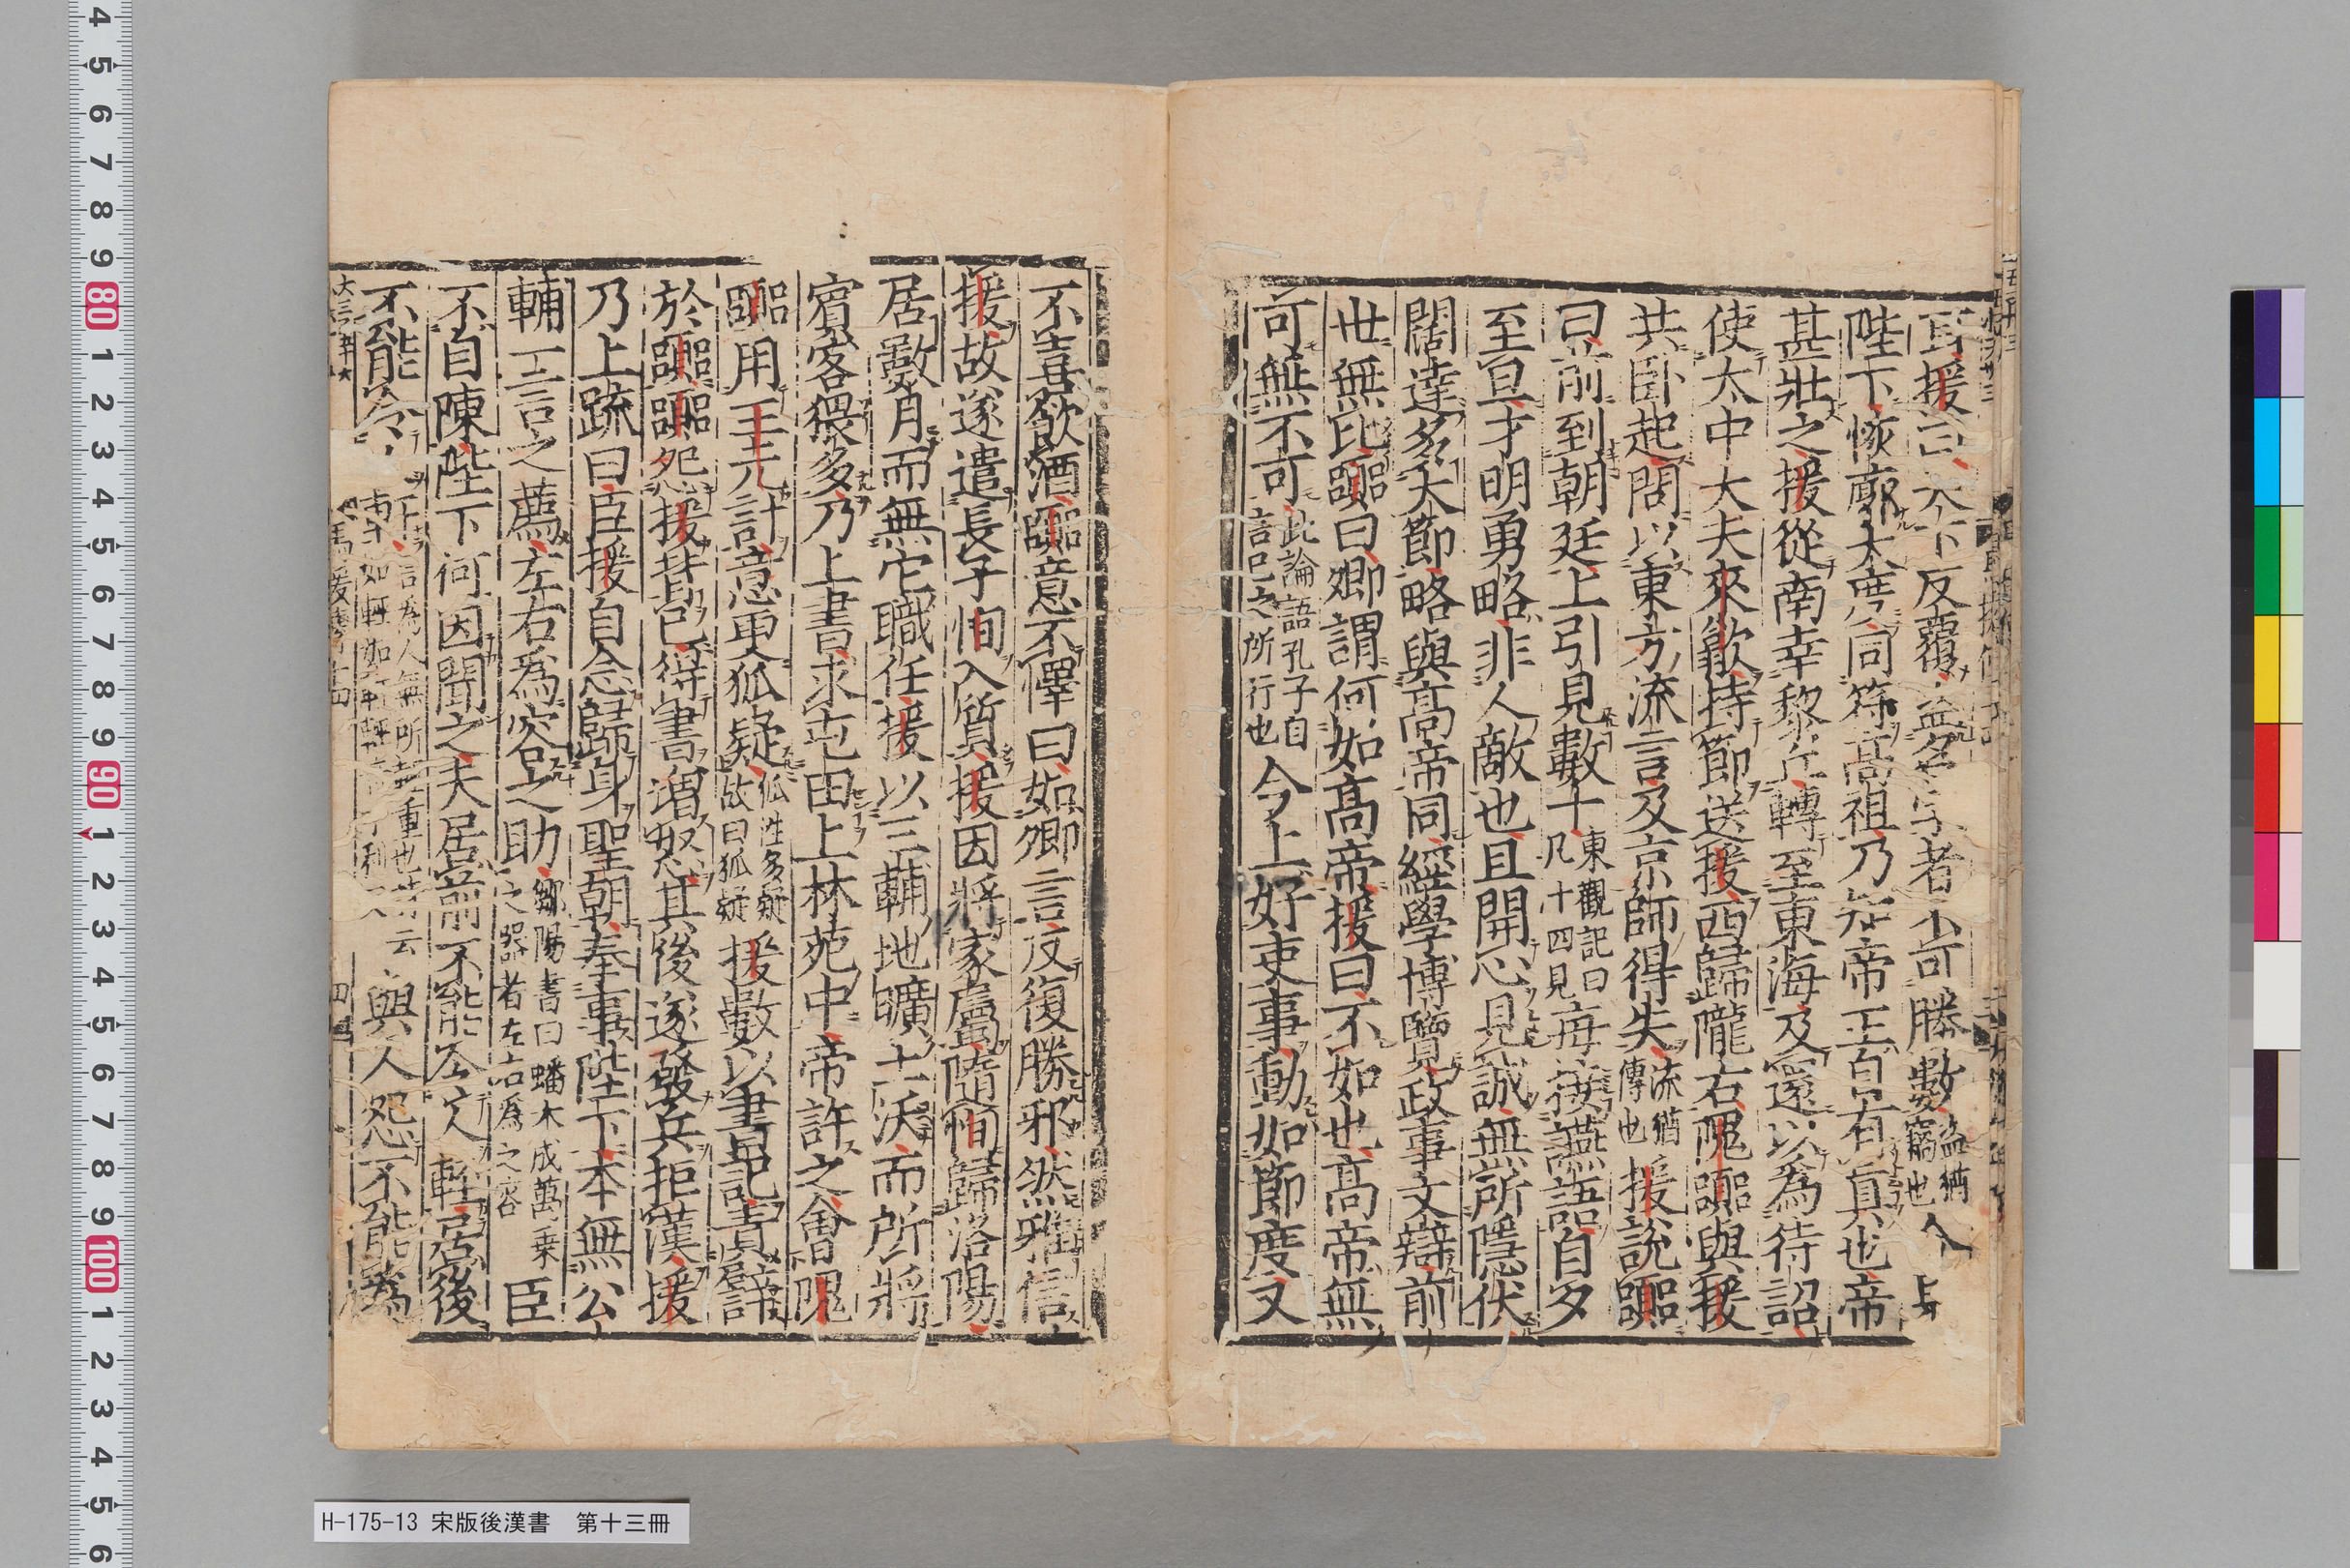 耳援曰天下反覆盗名字者不可勝數盗猶竊也今見
陛下恢廓大度同符高祖乃知帝王自有真也帝
甚壯之援從南幸黎丘轉至東海及還以為待詔
使太中大夫來歙持節送援西歸隴右隗囂與援
共卧起問以東方流言及京師得失流猶傳也援説囂
曰前到朝廷上引見數十東觀記曰凡十四見每接讌語自夕
至旦才明勇略非人敵也且開心見誠無所隱伏
闊達多大節略與高帝同經學博覽政事文辯前
世無比囂曰卿謂何如高帝援曰不如也高帝無
可無不可此論語孔子自言己之所行也今上好吏事動如節度又
不喜飲酒囂意不懌曰如卿言反復勝邪然雅信
援故遂遣長子恂入質援因將家屬隨恂歸洛陽
居數月而無它職任援以三輔地曠土沃而所將
賓客猥多乃上書求屯田上林苑中帝許之會隗
囂用王元計意更狐疑狐性多疑故曰狐疑援數以書記責譬
於囂囂怨援背己得書增怒其後遂發兵拒漢援
乃上疏曰臣援自念歸身聖朝奉事陛下本無公
輔一言之薦左右為容之助鄒陽書曰蟠木成萬乗之器者左右為之容臣
不自陳陛下何因聞之夫居前不能令人輊居後
不能令人軒言為人無所輕重也詩云如輊如軒與人怨不能為
大三百五十
馬援傳十四
四
H-175-13 宋版後漢書　第十三冊